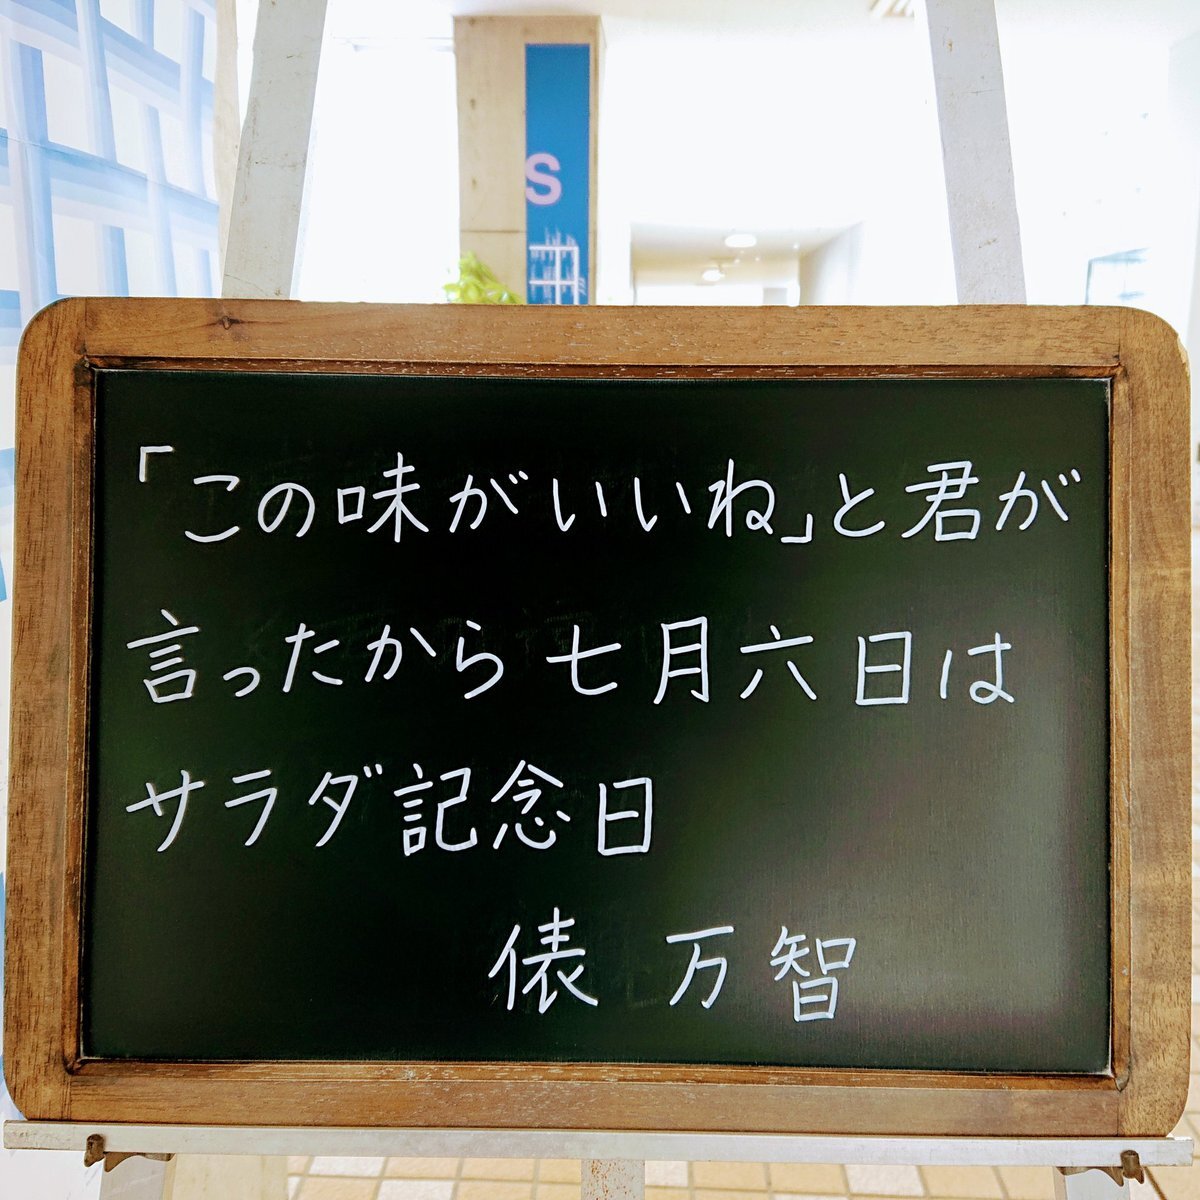 S
「この味がいいね」と君が
言ったから七月六日は
サラダ記念日
俵 万智